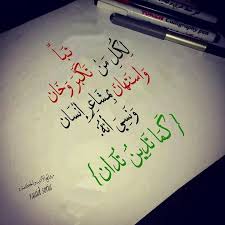 تباً
لِكُلِ مَنْ تَكَبَر وَخَان
وَاسْتَهَان بِمَشَاعِر إنْسَان
وَنَسِيَ أنَهُ
{ كَمَا تَدِين تُدَان }